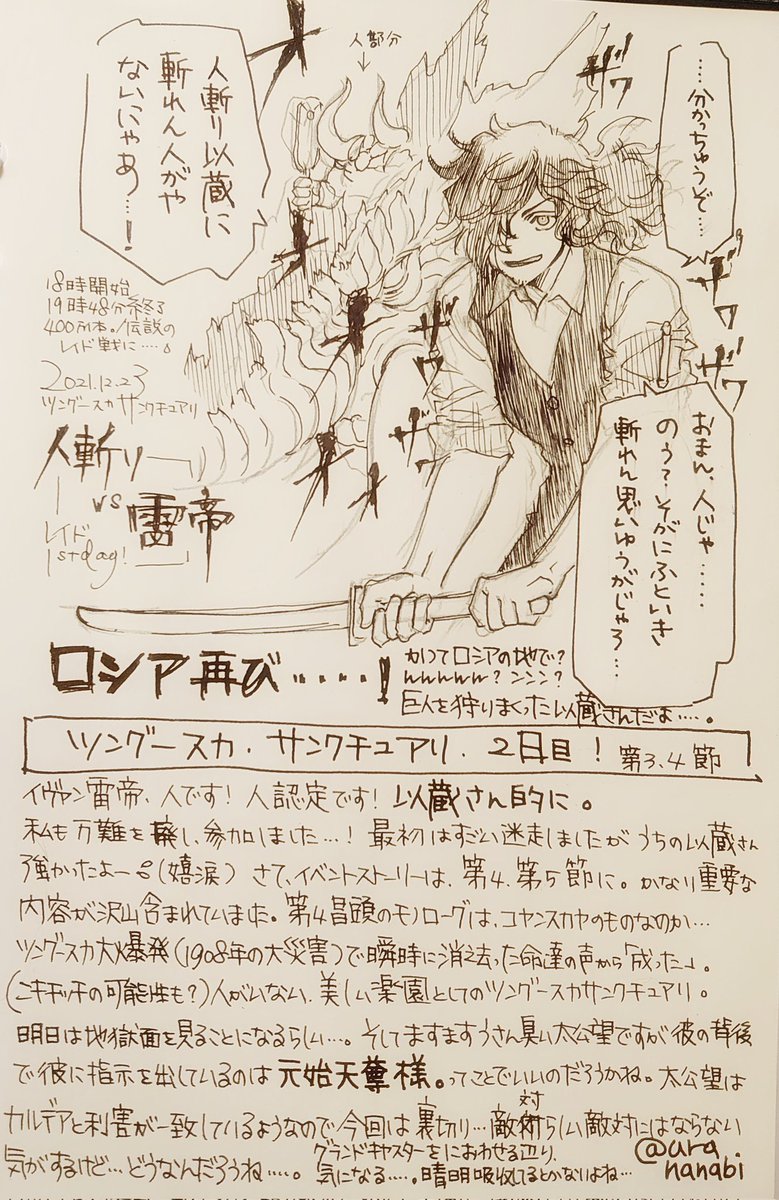 ……分かっちゅうぞ…
ザワ
ザワ
ザワ
人部分
↓
人斬り以蔵に
斬れん人がや
ないにゃあ…!
18時開始
19時48分終了
400万本。/伝説の
レイド戦に……。
2021.12.23
ツングースカサンクチュアリ
人斬り
vs
雷帝
レイド
1stday!
おまん、人じゃ……
のう?そがにふといき
斬れん思いゆうがじゃろ…
ロシア再び……!
かつてロシアの地で?
wwwww?ンンン?
巨人を狩りまくった以蔵さんだよ……。
ツングースカ.サンクチュアリ.2日目! 第3.4節
イヴァン雷帝、人です!人認定です!以蔵さん的に。
私も万難を廃し、参加しました…!最初はすごい迷走しましたがうちの以蔵さん
強かったよー(嬉涙)さて、イベントストーリーは、第4.第5節に。かなり重要な
内容が沢山含まれていました。第4冒頭のモノローグは、コヤンスカヤのものなのか…
ツングースカ大爆発(1908年の大災害)で瞬時に消え去った命達の声から「成った」。
(ニキチッチの可能性も?)人がいない、美しい楽園としてのツングースカサンクチュアリ。
明日は地獄面を見ることになるらしい…。そしてますますうさん臭い太公望ですが彼の背後
で彼に指示を出しているのは元始天尊様。ってことでいいのだろうかね。太公望は
カルデアと利害が一致しているようなので、今回は裏切り…敵対らしい敵対にはならない
気がするけど…どうなんだろうね……。グランドキャスターをにおわせる辺り、
気になる……。晴明吸収してるとかないよね…
@ura_nanabi